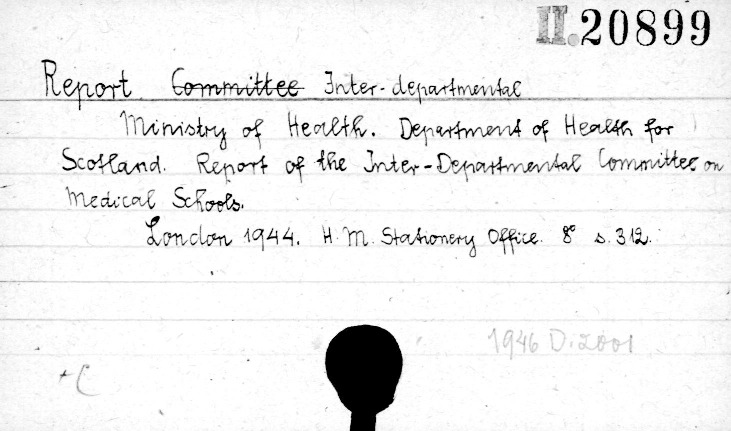 II.20899
Report Committee Inter-departmental
Ministry of Health. Department of Health for
Scotland. Report of the Inter-Departmental Committee on
Medical Schools.
London 1944. H. M. Stationery Office. 8° s. 312.
1946 D. 2001
+C